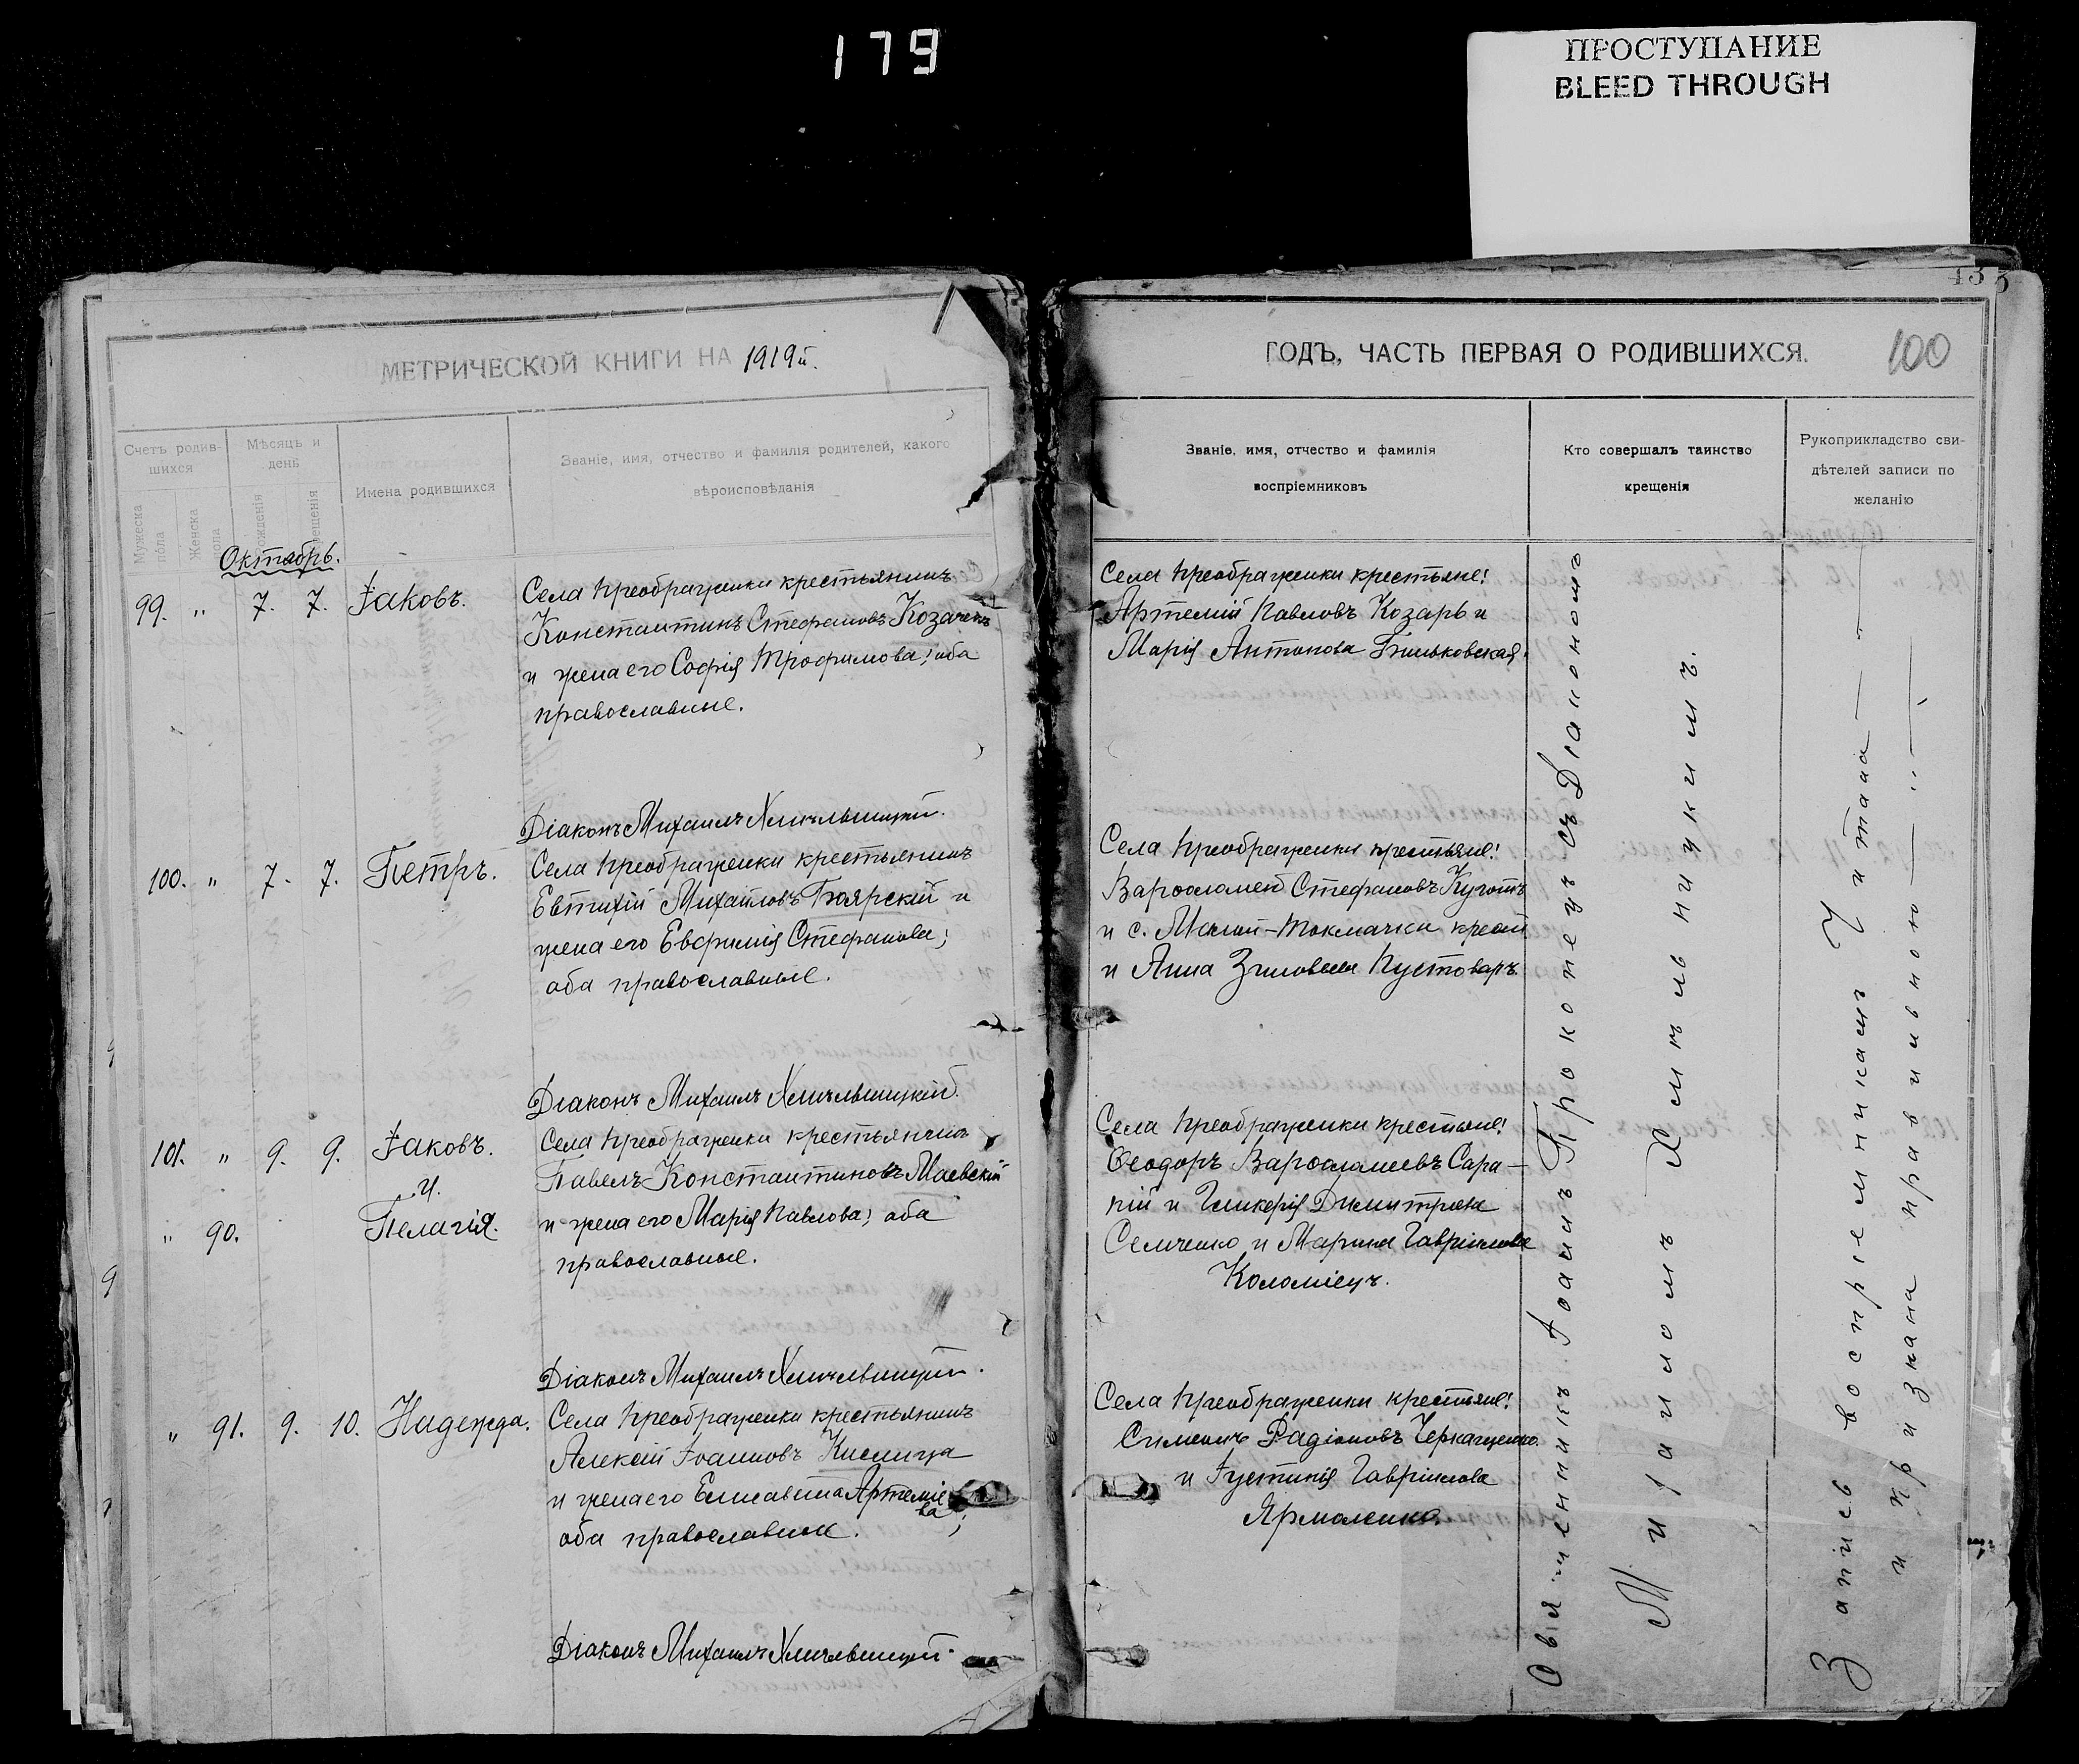 179
ПРОСТУПАНИЕ
BLEED THROUGH
МЕТРИЧЕСКОЙ КНИГИ НА 1919й.
Счетъ родив-
шихся
Мѣсяцъ и
день
Мужеска
пола
Женска
пола
рожденія
крещенія
Имена родившихся
Званіе, имя, отчество и фамилія родителей, какого
вѣроисповѣданія
Октябрь.
99. " 7. 7. Іаковъ.
Села Преображенки крестьянинъ
Константинъ Стефановъ Козаченко
и жена его Софія Трофимова; оба
православные.
Діаконъ Михаилъ Хмѣльницкій.
100. " 7. 7. Петръ.
Села Преображенки крестьянинъ
Евтихій Михайловъ Боярскій и
жена его Евфимія Стефанова;
оба православные.
Діаконъ Михаилъ Хмѣльницкій.
101. " 9. 9. Іаковъ.
и.
" 90. Пелагія.
Села Преображенки крестьянинъ
Павелъ Константиновъ Маевскій
и жена его Марія Павлова; оба
православные.
Діаконъ Михаилъ Хмѣльницкій.
" 91. 9. 10. Надежда.
Села Преображенки крестьянинъ
Алексій Іоанновъ Кислица
и жена его Елисавета Артеміе
ва;
оба православные.
Діаконъ Михаилъ Хмѣльницкій.
133
ГОДЪ, ЧАСТЬ ПЕРВАЯ О РОДИВШИХСЯ.
100
Званіе, имя, отчество и фамилія
воспріемниковъ
Кто совершалъ таинство
крещенія
Рукоприкладство сви-
дѣтелей записи по
желанію
Села Преображенки крестьяне:
Артемій Павловъ Козарь и
Марія Антонова Биньковская.
Села Преображенки крестьяне:
Варфоломей Стефановъ
и с. Малой-Токмачки крест
и Анна Зиновьева Пустоваръ.
Села Преображенки крестьяне:
Ѳеодоръ Варфоломеевъ Сара-
пій и Гликерія Димитріева
Семченко и Марина Гавріилова
Коломіецъ.
Села Преображенки крестьяне:
Симеонъ Радіоновъ Черкащенко
и Іустинія Гавріилова
Ярмоленко.
Священникъ Іоаннъ Прокопецъ съ Діакономъ
Михаиломъ Хмѣльницкимъ.
Запись воспріемникамъ читана
и признана правильною